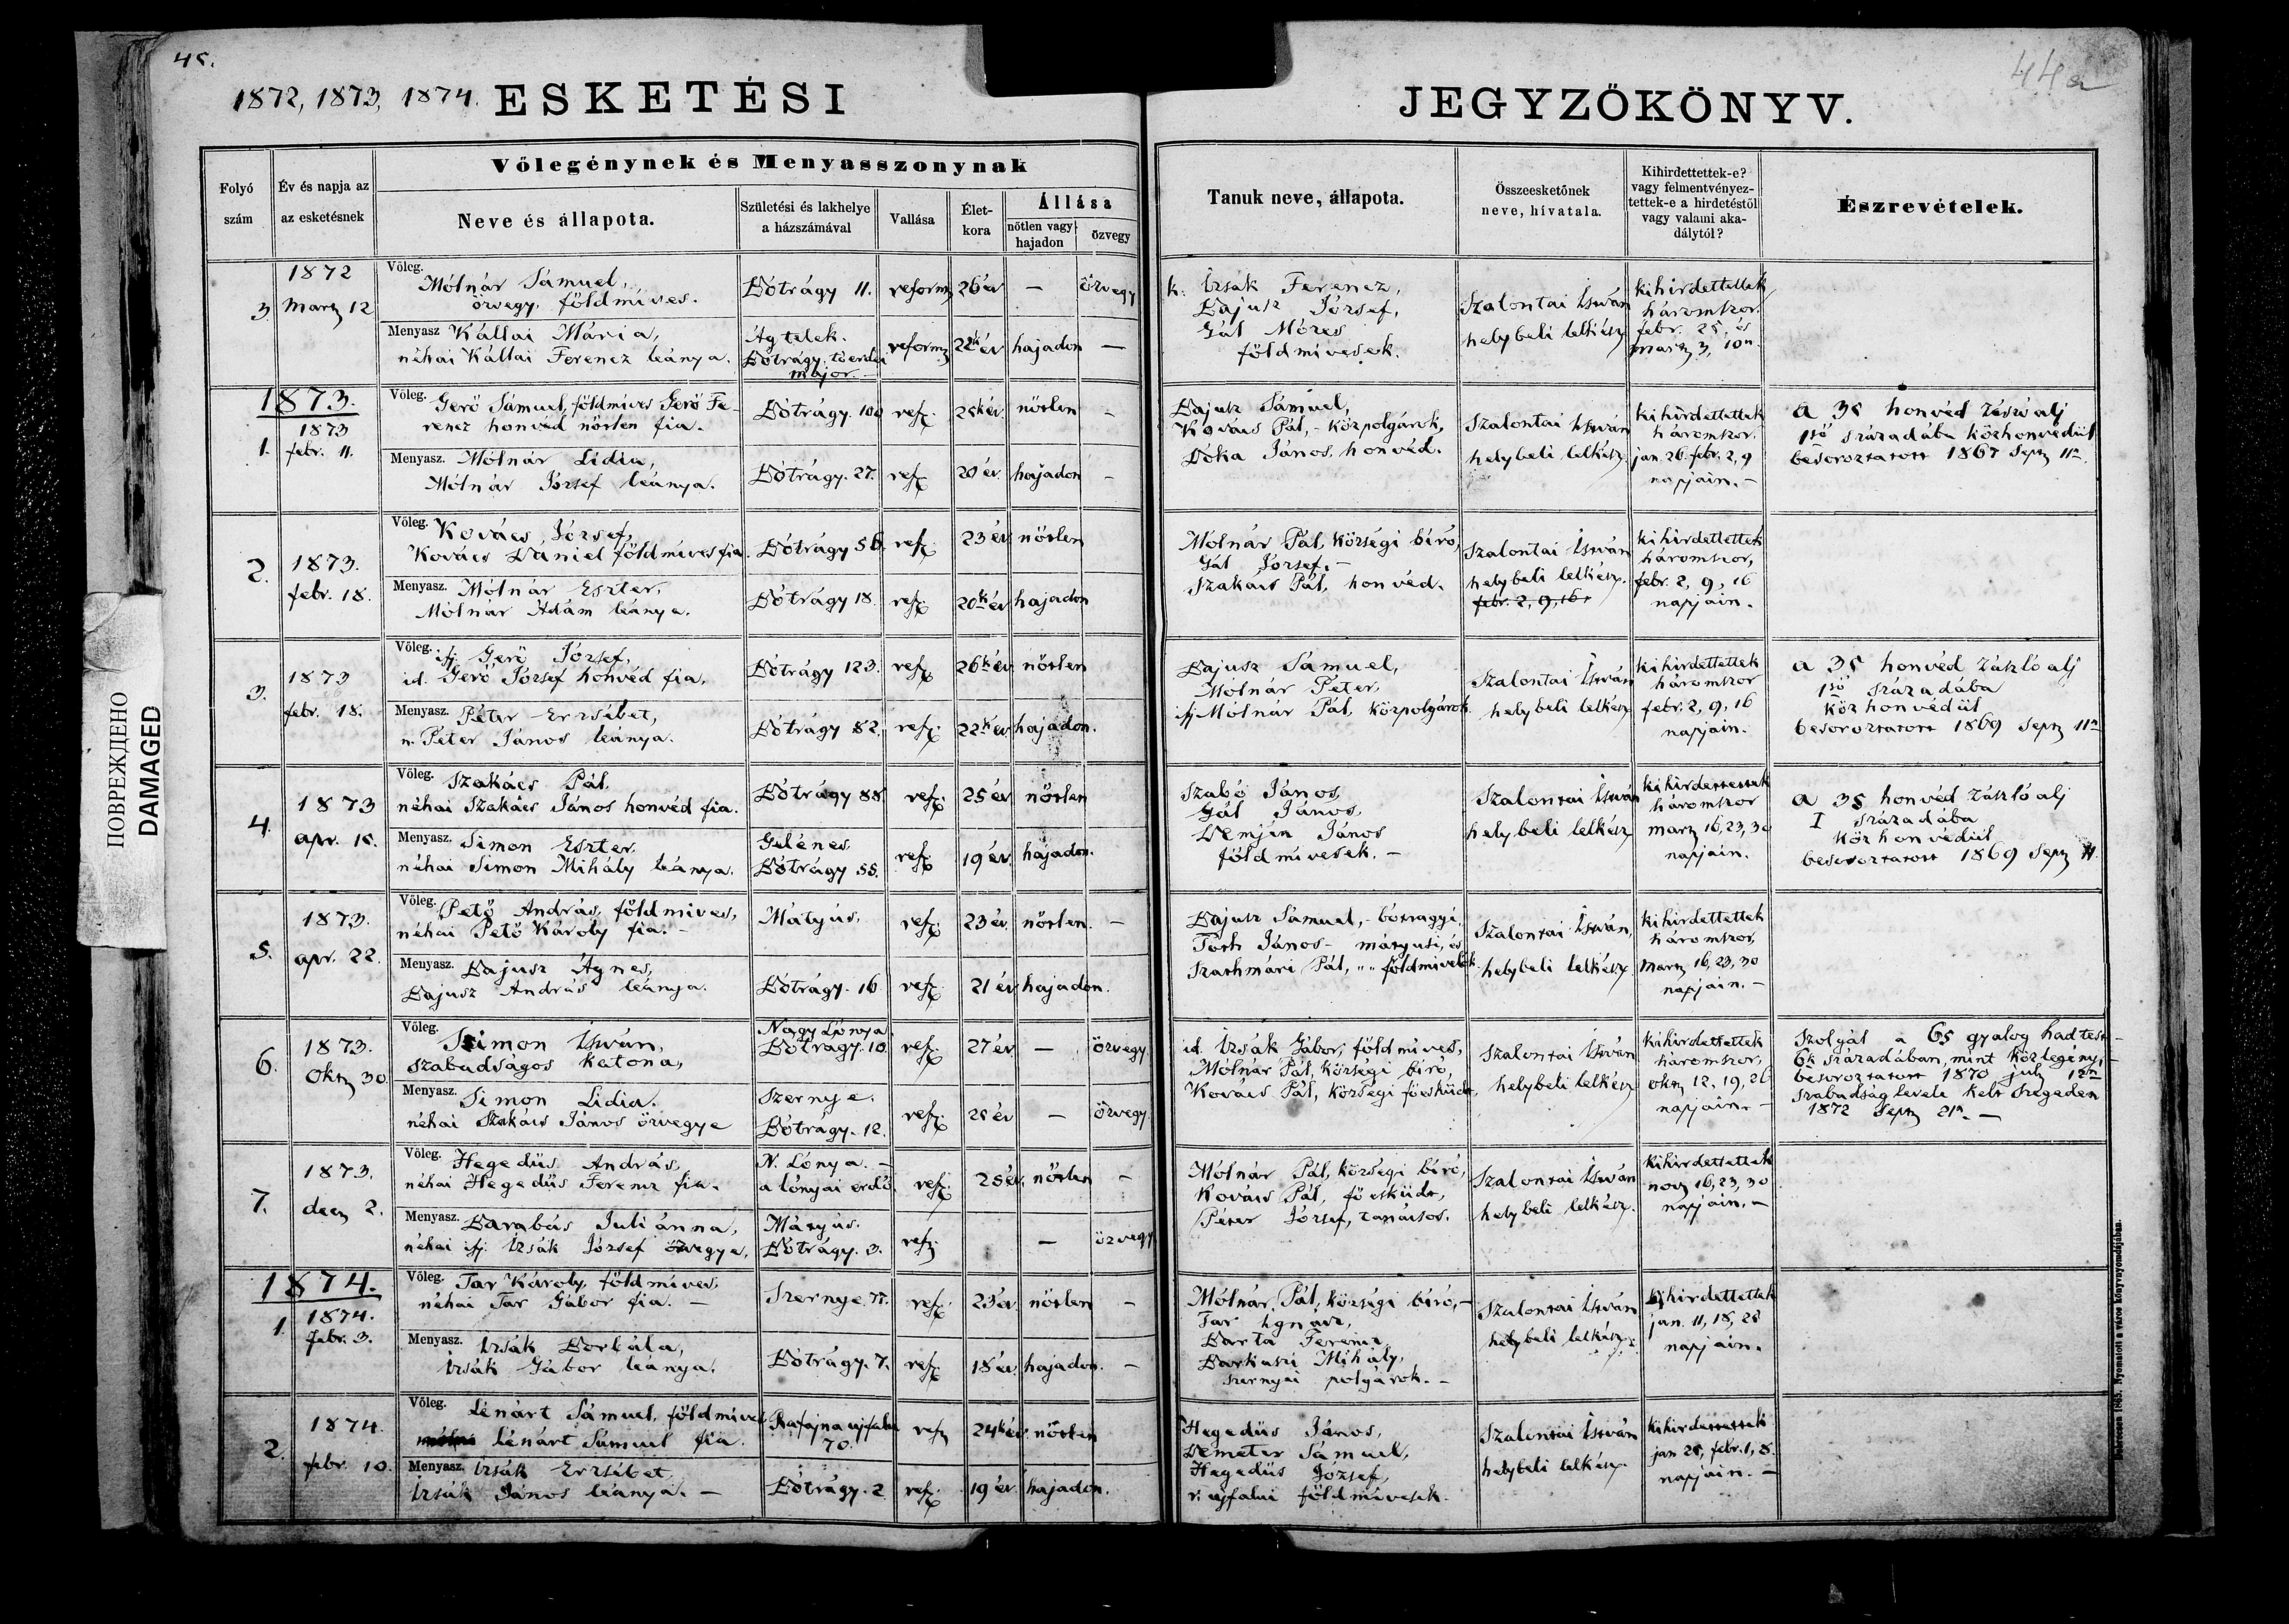 45.
44a
1872, 1873, 1874. ESKETÉSI
JEGYZŐKÖNYV.
Folyó szám
Év és napja az az esketésnek
Vőlegénynek és Menyasszonynak
Neve és állapota.
Születési és lakhelye a házszámával
Vallása
Élet-kora
Állása
nőtlen vagy hajadon
özvegy
Tanuk neve, állapota.
Összeesketőnek neve, hívatala.
Kihirdettettek-e? vagy felmentvényez-tettek-e a hirdetéstől vagy valami aka-dálytól?
Észrevételek.
3
1872
Martz 12
Vőleg.
Mólnár Sámuel,
özvegy. földmíves.
Bótrágy 11.
reform
26 év
—
özvegy
Menyasz Kállai Mária,
néhai Kállai Ferencz leánya.
Ágtelek.
Bótrágy. tó erdei
major. —
reform
22k év
hajadon
—
k. Izsák Ferencz,
Bajusz József,
Gál Mózes
földmívesek.
Szalontai István
helybeli lelkész
kihirdettettek
háromszor.
febr. 25, és
martz 3, 10n.
1873.
1.
1873
febr. 11.
Vőleg. Gerő Sámuel, földmíves Gerő Fe-
rencz honvéd nőtlen fia.
Bótrágy. 100
ref.
25k év.
nőtlen
—
Menyasz. Mólnár Lidia,
Mólnár József leánya.
Bótrágy. 27.
ref.
20 év.
hajadon
—
Bajusz Sámuel,
Kovács Pál, - közpolgárok,
Dóka János, honvéd.
Szalontai István
helybeli lelkész
kihirdettettek
háromszor.
jan. 26. febr. 2, 9
napjain. —
a 35 honvéd zászóalj
1ső századába közhonvédül
besoroztatott 1867 Sept 11n.
2.
1873.
febr. 18.
Vőleg. Kovács József,
Kovács Dániel földmíves fia.
Bótrágy 56.
ref.
23 év
nőtlen
Menyasz. Mólnár Eszter,
Mólnár Ádám leánya.
Bótrágy 18.
ref.
20k év
hajadon
Mólnár Pál, községi bíró,
Gál József. —
Szakács Pál, honvéd.
Szalontai István
helybeli lelkész.
febr. 2, 9, 16.
kihirdettettek
háromszor,
febr. 2, 9, 16
napjain.
3.
1873
febr. 18.
Vőleg. ifj Gerő József,
id. Gerő József honvéd fia,
Bótrágy 123.
ref.
26k év
nőtlen
Menyasz. Péter Erzsébet,
n. Péter János leánya.
Bótrágy 82.
ref.
22k év
hajadon.
Bajusz Sámuel,
Mólnár Péter,
ifj Mólnár Pál, közpolgárok.
Szalontai István
helybeli lelkész
kihirdettettek
háromszor
febr. 2, 9, 16
napjain.
a 35 honvéd zászló alj
1ső századába
köz honvédül
besoroztatott 1869 Sept 11n
4.
1873
apr. 15.
Vőleg. Szakács Pál.
néhai Szakács János honvéd fia.
Bótrágy 88.
ref.
25 év
nőtlen
Menyasz. Simon Eszter
néhai Simon Mihály leánya.
Gelénes.
Bótrágy 55.
ref.
19 év
hajadon.
Szabó János,
Gál János,
Demjén János
földmívesek. —
Szalontai István
helybeli lelkész
kihirdettettek
háromszor
martz 16, 23, 30
napjain.
a 35 honvéd zászló alj
I századába
köz honvédül
besoroztatott 1869 Sept 11.
5.
1873.
apr. 22.
Vőleg. Pető András, földmíves,
néhai Pető Károly fia. —
Mátyús.
ref.
23 év
nőtlen.
—
Menyasz. Bajusz Ágnes,
Bajusz András leánya.
Bótrágy. 16
ref.
21 év
hajadon.
Bajusz Sámuel, - bótragyi,
Tóth János - mátyusi, és
Szathmári Pál, „ „ földmivelők.
Szalontai István,
helybeli lelkész.
kihirdettettek
háromszor,
Martz 16, 23, 30
napjain. —
6.
1873.
Okt 30.
Vőleg. Simon István,
szabadságos katona,
Nagy Lónya.
Bótrágy. 10.
ref.
27 év
—
özvegy
Menyasz. Simon Lidia.
néhai Szakács János özvegye
Szernye.
Bótrágy. 12.
ref.
25 év
—
özvegy.
id. Izsák Gábor, földmíves,
Mólnár Pál, községi bíró,
Kovács Pál, községi főesküdt,
Szalontai István
helybeli lelkész
kihirdettettek
háromszor,
okt 12, 19, 26
napjain. —
Szolgál a 65 gyalog hadtest-
6k századában, mint közlegény,
besoroztatott 1870 jul 12n
Szabadság levele kelt Szegeden
1872 Sept 21n. —
7.
1873.
decz 2.
Vőleg. Hegedüs András,
néhai Hegedüs Ferencz fia.
N. Lónya. —
a lónyai erdő.
ref.
25 év.
nőtlen
—
Menyasz. Barabás Juliánna,
néhai ifj. Izsák József özvegye,
Mátyús.
Bótrágy. 3.
ref.
—
özvegy
Mólnár Pál, községi bíró,
Kovács Pál, fő esküdt,
Péter József, tanácsos.
Szalontai István
helybeli lelkész.
kihirdettettek
nov 16, 23, 30
napjain. —
1874.
1.
1874.
febr. 3.
Vőleg. Tar Károly, földmíves,
néhai Tar Gábor fia. —
Szernye. 77.
ref.
23 év
nőtlen
—
Menyasz. Izsák Borbála,
Izsák Gábor leánya.
Bótrágy. 7.
ref.
18 év.
hajadon.
—
Mólnár, Pál, községi bíró, —
Tar Ignácz,
Barta Ferencz,
Barkaszi Mihály,
szernyai polgárok. —
Szalontai István
helybeli lelkész.
kihirdettettek
jan. 11, 18, 25
napjain.
2.
1874.
febr. 10.
Vőleg. Lénárt Sámuel, földmíves
Lénárt Sámuel fia.
Rafajna ujfalu
70.
ref
24k év
nőtlen
Menyasz. Izsák Erzsébet
Izsák János leánya. —
Bótrágy. 2
ref.
19 év
hajadon.
Hegedüs János,
Demeter Sámuel,
Hegedüs József,
r. ujfalui földmívesek.
Szalontai István
helybeli lelkész.
kihirdettettek
jan 25, febr. 1, 8.
napjain. —
ПОВРЕЖДЕНО
DAMAGED
Debreczen 1865. Nyomatott a város könyvnyomdájában.